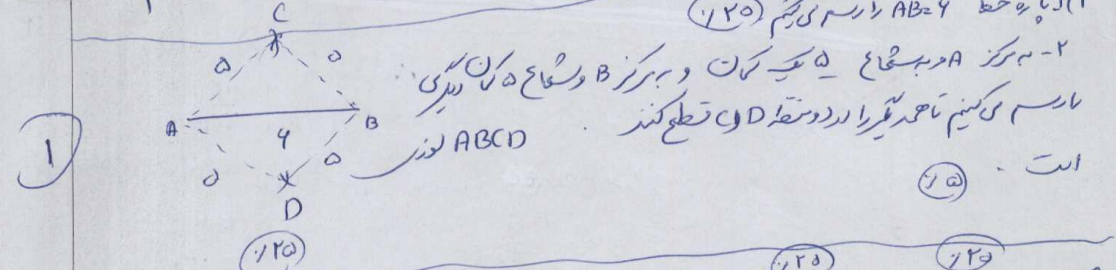 ۱) پاره خط AB=۶ را رسم می کنیم (۰/۲۵)
۲- به مرکز A و به شعاع ۵ یک کمان و به مرکز B و شعاع ۵ کمان دیگری
رسم می کنیم تا همدیگر را در دو نقطه D و C قطع کنند. ABCD لوزی
است. (۰/۵)
C
۵ ۵
A ۶ B
۵ ۵
D
۱
۰/۲۵ ۰/۲۵ ۰/۲۵